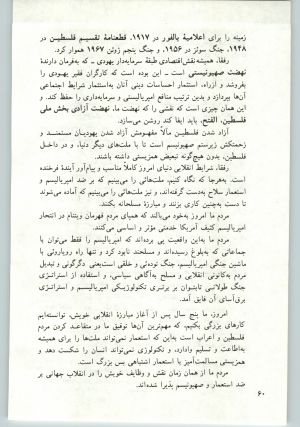 زمینه را برای اعلامیهٔ بالفور در ۱۹۱۷، قطعنامهٔ تقسیم فلسطین در
۱۹۴۸، جنگ سوئز در ۱۹۵۶، و جنگ پنجم ژوئن ۱۹۶۷ هموار کرد.
رفقا، همیشه نقش اقتصادی طبقهٔ سرمایه‌دار یهودی ـ که به‌فرمان دارندهٔ
نهضت صهیونیستی است ـ این بوده است که کارگران فقیر یهودی را
بفروشد و ازراه، استثمار احساسات دینی آنان به‌استثمار شرایط اجتماعی
آن‌ها بپردازد و بدین ترتیب منافع امپریالیستی و سرمایه‌داری را حفظ کند. و
این همان چیزی است که نقش را که نهضت ما، نهضت آزادی بخش ملی
فلسطین، الفتح، باید ایفا کند روشن می‌سازد.
آزاد شدن فلسطین مآلا مفهومش آزاد شدن یهودیان مستمند و
زحمتکش زیرستم صهیونیسم است تا با ملت‌های دیگر دنیا، و در داخل
فلسطین، بدون هیچ‌گونه تبعیض همزیستی داشته باشند.
رفقا، شرایط انقلابی دنیای امروز کاملا مناسب و پیام‌آور آیندهٔ فرخنده
است. به‌هرجا که نگاه کنیم، ملت‌هائی را می‌بینیم که بر ضد امپریالیسم و
استعمار سلاح به‌دست گرفته‌اند، و نیز ملت‌هائی را می‌بینیم که آماده می‌شوند
تا دست به‌چنین کاری بزنند و مبارزهٔ مسلحانه بکنند.
مردم ما امروز به‌خود می‌بالند که همپای مردم قهرمان ویتنام در انتحار
امپریالیسم کثیف آمریکا خدمتی مؤثر و اساسی می‌کنند.
مردم ما به‌این واقعیت پی برده‌اند که امپریالیسم را فقط می‌توان با
جماعاتی که به‌بلوغ رسیده‌اند و مسلحند نابود کرد و تنها راه رویاروئی با
ماشین جنگی امپریالیسم، جنگ توده‌ئی و خلقی است‌یعنی دگرگونی و تبدیل
مردم به‌کانونی انقلابی و مسلح به‌آگاهی سیاسی، و استفاده از استراتژی
جنگ طولانی تابتوان بر برتری تکنولوژیکی امپریالیسم و استراتژی
برق‌آسای آن فایق آمد.
ما امروز، ما پنج سال پس از آغاز مبارزهٔ انقلابی خویش، توانسته‌ایم
کارهای بزرگی بکنیم، که مهم‌ترین آن‌ها توفیق ما در متقاعد کردن مردم
فلسطین و اعراب است به‌این که استعمار نمی‌تواند ملت‌ها را برای همیشه
به‌اطاعت و تسلیم وادارد، و تکنولوژی نمی‌تواند انسان را شکست دهد و
همزیستی مسالمت‌آمیز با استعمار اشتباهی بس بزرگ است.
مردم ما از همان زمان نقش و وظایف خویش را در انقلاب جهانی بر
ضد استعمار و صهیونیسم پذیرا شده‌اند.
۶۰